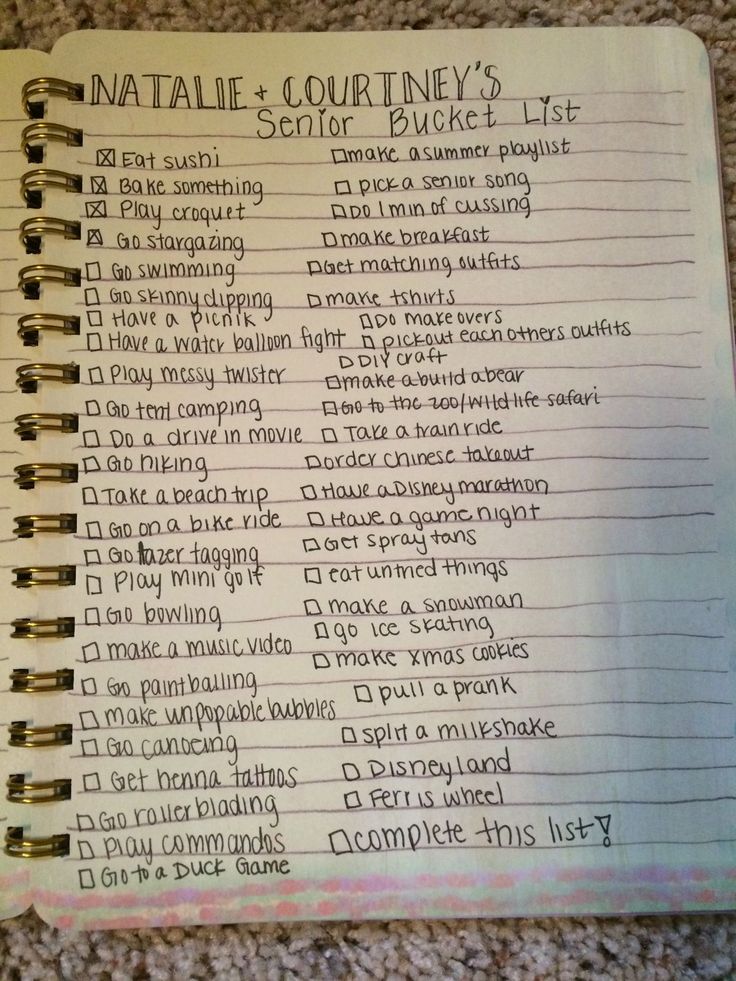 NATALIE + COURTNEY'S
Senior Bucket List
Eat sushi
Bake something
Play croquet
Go stargazing
Go swimming
Go skinny dipping
Have a picnik
Have a water balloon fight
Play messy twister
Go tent camping
Do a drive in movie
Go hiking
Take a beach trip
Go on a bike ride
Go lazer tagging
Play mini golf
Go bowling
make a music video
Go paintballing
make unpopable bubbles
Go canoeing
Get henna tattoos
Go rollerblading
Play commandos
Go to a Duck Game
make a summer playlist
pick a senior song
Do 1 min of cussing
make breakfast
Get matching outfits
make tshirts
Do makeovers
pickout each others outfits
DIY craft
make a build a bear
Go to the zoo/wildlife safari
Take a train ride
order chinese takeout
Have a Disney marathon
Have a game night
Get spray tans
eat untried things
make a snowman
go ice skating
make xmas cookies
pull a prank
split a milkshake
Disneyland
Ferris wheel
complete this list!